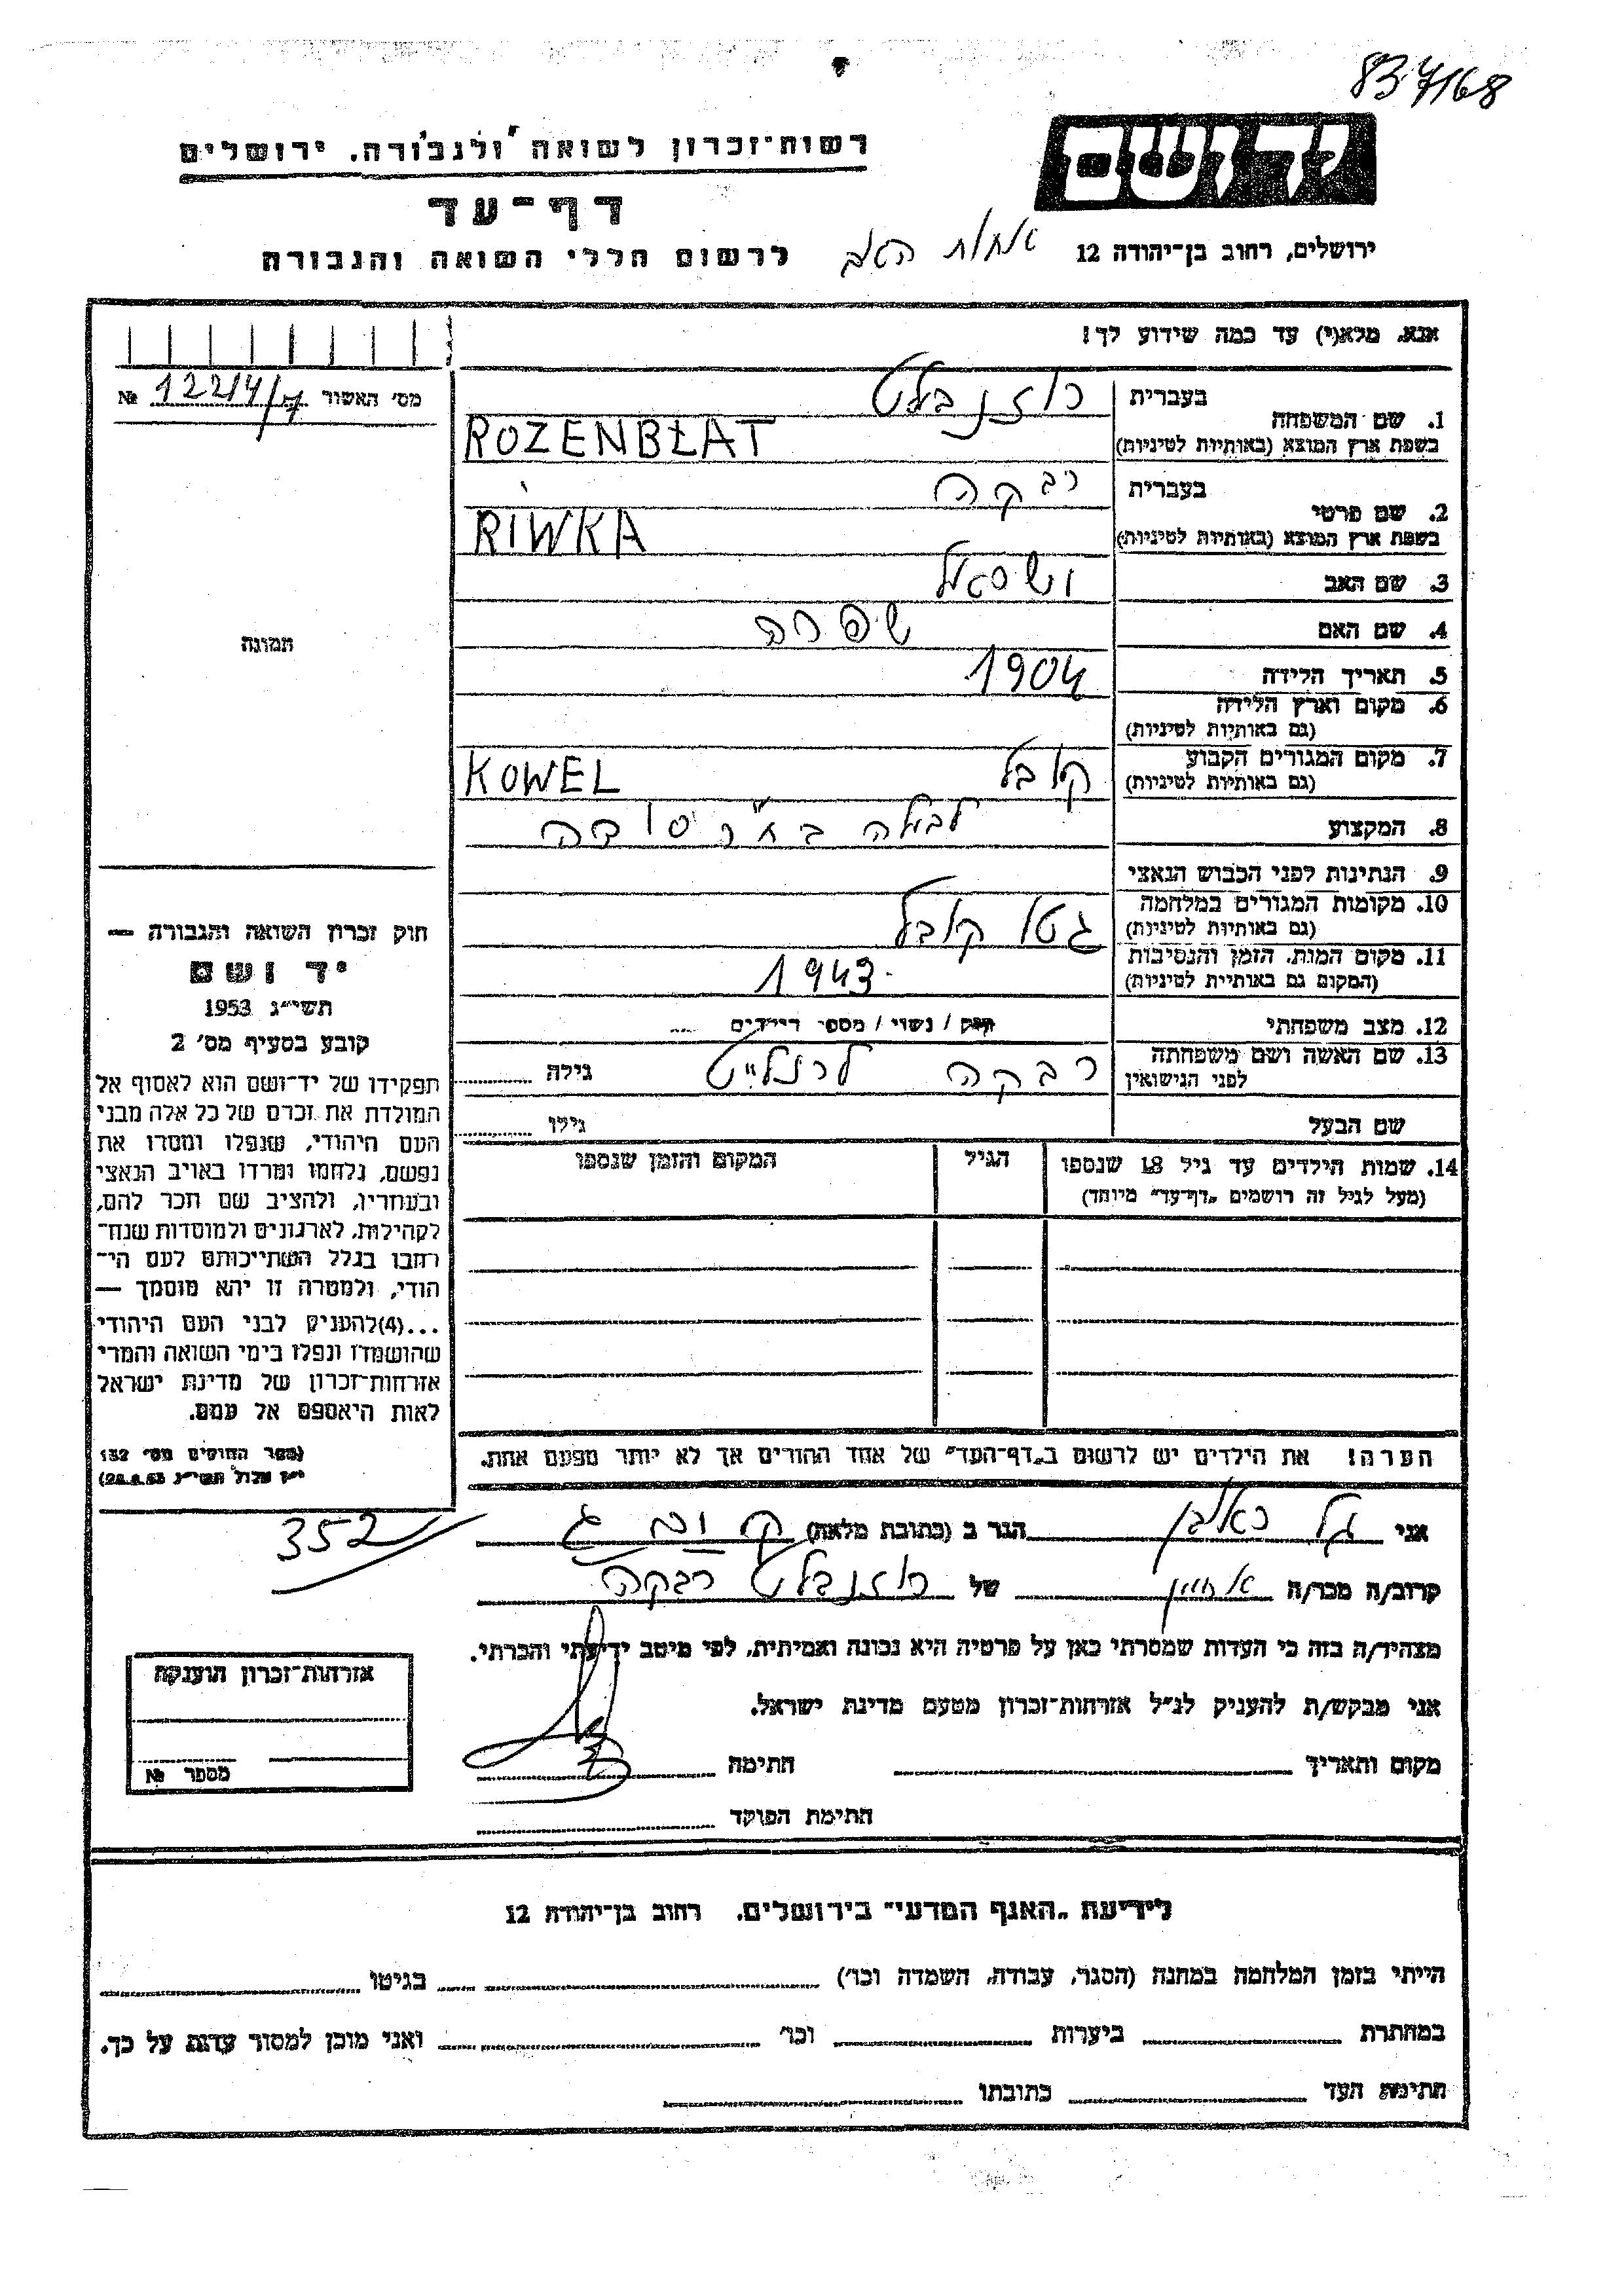 837168
יד ושם
רשות־זכרון לשואה ולגבורה, ירושלים
דף־עד
ירושלים, רחוב בן־יהודה 12
לרשום חללי השואה והגבורה
אנא, מלא(י) עד כמה שידוע לך!
מס׳ האשור № 12214/7
1. שם המשפחה
בעברית רוזנבלט
בשפת ארץ המוצא (באותיות לטיניות) ROZENBŁAT
2. שם פרטי
בעברית רבקה
בשפת ארץ המוצא (באותיות לטיניות) RIWKA
3. שם האב
4. שם האם שפרה
5. תאריך הלידה 1904
6. מקום וארץ הלידה
(גם באותיות לטיניות)
7. מקום המגורים הקבוע קובל KOWEL
(גם באותיות לטיניות)
8. המקצוע
9. הנתינות לפני הכבוש הנאצי
10. מקומות המגורים במלחמה גטו קובל
(גם באותיות לטיניות)
11. מקום המות, הזמן והנסיבות 1943
(המקום גם באותיות לטיניות)
12. מצב משפחתי רווק / נשוי / מספר הילדים
13. שם האשה ושם משפחתה רבקה
לפני הנישואין
גילה
שם הבעל
גילו
14. שמות הילדים עד גיל 18 שנספו
(מעל לגיל זה רושמים „דף־עד״ מיוחד)
הגיל
המקום והזמן שנספו
הערה! את הילדים יש לרשום ב„דף־העד״ של אחד ההורים אך לא יותר מפעם אחת.
תמונה
חוק זכרון השואה והגבורה —
יד ושם
תשי״ג 1953
קובע בסעיף מס׳ 2
תפקידו של יד־ושם הוא לאסוף אל
המולדת את זכרם של כל אלה מבני
העם היהודי, שנפלו ומסרו את
נפשם, נלחמו ומרדו באויב הנאצי
ובעוזריו, ולהציב שם וזכר להם,
לקהילות, לארגונים ולמוסדות שנח־
רבו בגלל השתייכותם לעם הי־
הודי, ולמטרה זו יהא מוסמך —
...(4)להעניק לבני העם היהודי
שהושמדו ונפלו בימי השואה והמרי
אזרחות־זכרון של מדינת ישראל
לאות היאספם אל עמם.
(ספר החוקים מס׳ 132
י״ז אלול תשי״ג 28.8.53)
352
אני גל ראובן הגר ב (כתובת מלאה)
קרוב/ה מכר/ה של רוזנבלט רבקה
מצהיר/ה בזה כי העדות שמסרתי כאן על פרטיה היא נכונה ואמיתית, לפי מיטב ידיעתי והכרתי.
אני מבקש/ת להעניק לנ״ל אזרחות־זכרון מטעם מדינת ישראל.
מקום ותאריך חתימה
חתימת הפוקד
אזרחות־זכרון הוענקה
מספר №
לידיעת „האגף המדעי״ בירושלים, רחוב בן־יהודה 12
הייתי בזמן המלחמה במחנה (הסגר, עבודה, השמדה וכו׳) בגיטו
במחתרת ביערות וכו׳ ואני מוכן למסור עדות על כך.
חתימת העד כתובתו